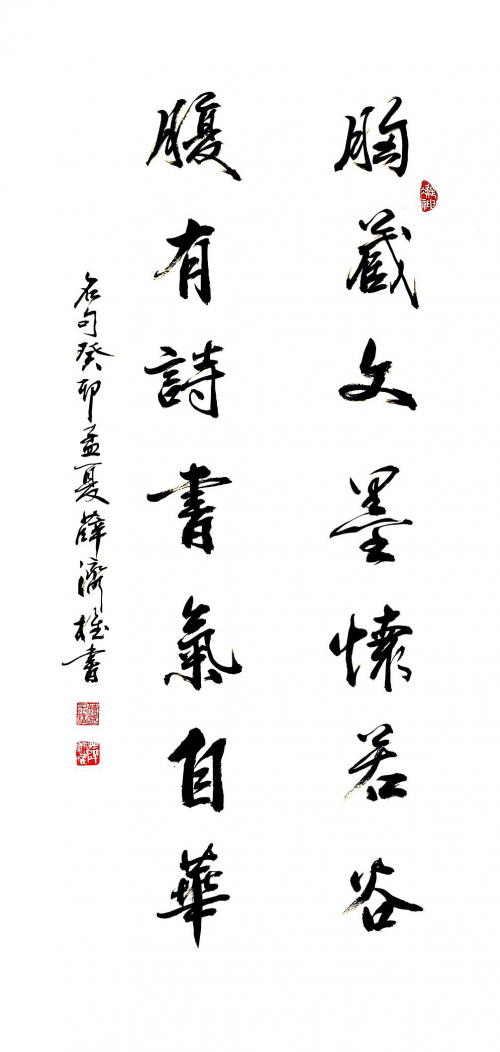 胸藏文墨懷若谷
腹有詩書氣自華
名句癸卯孟夏薛濟雄書